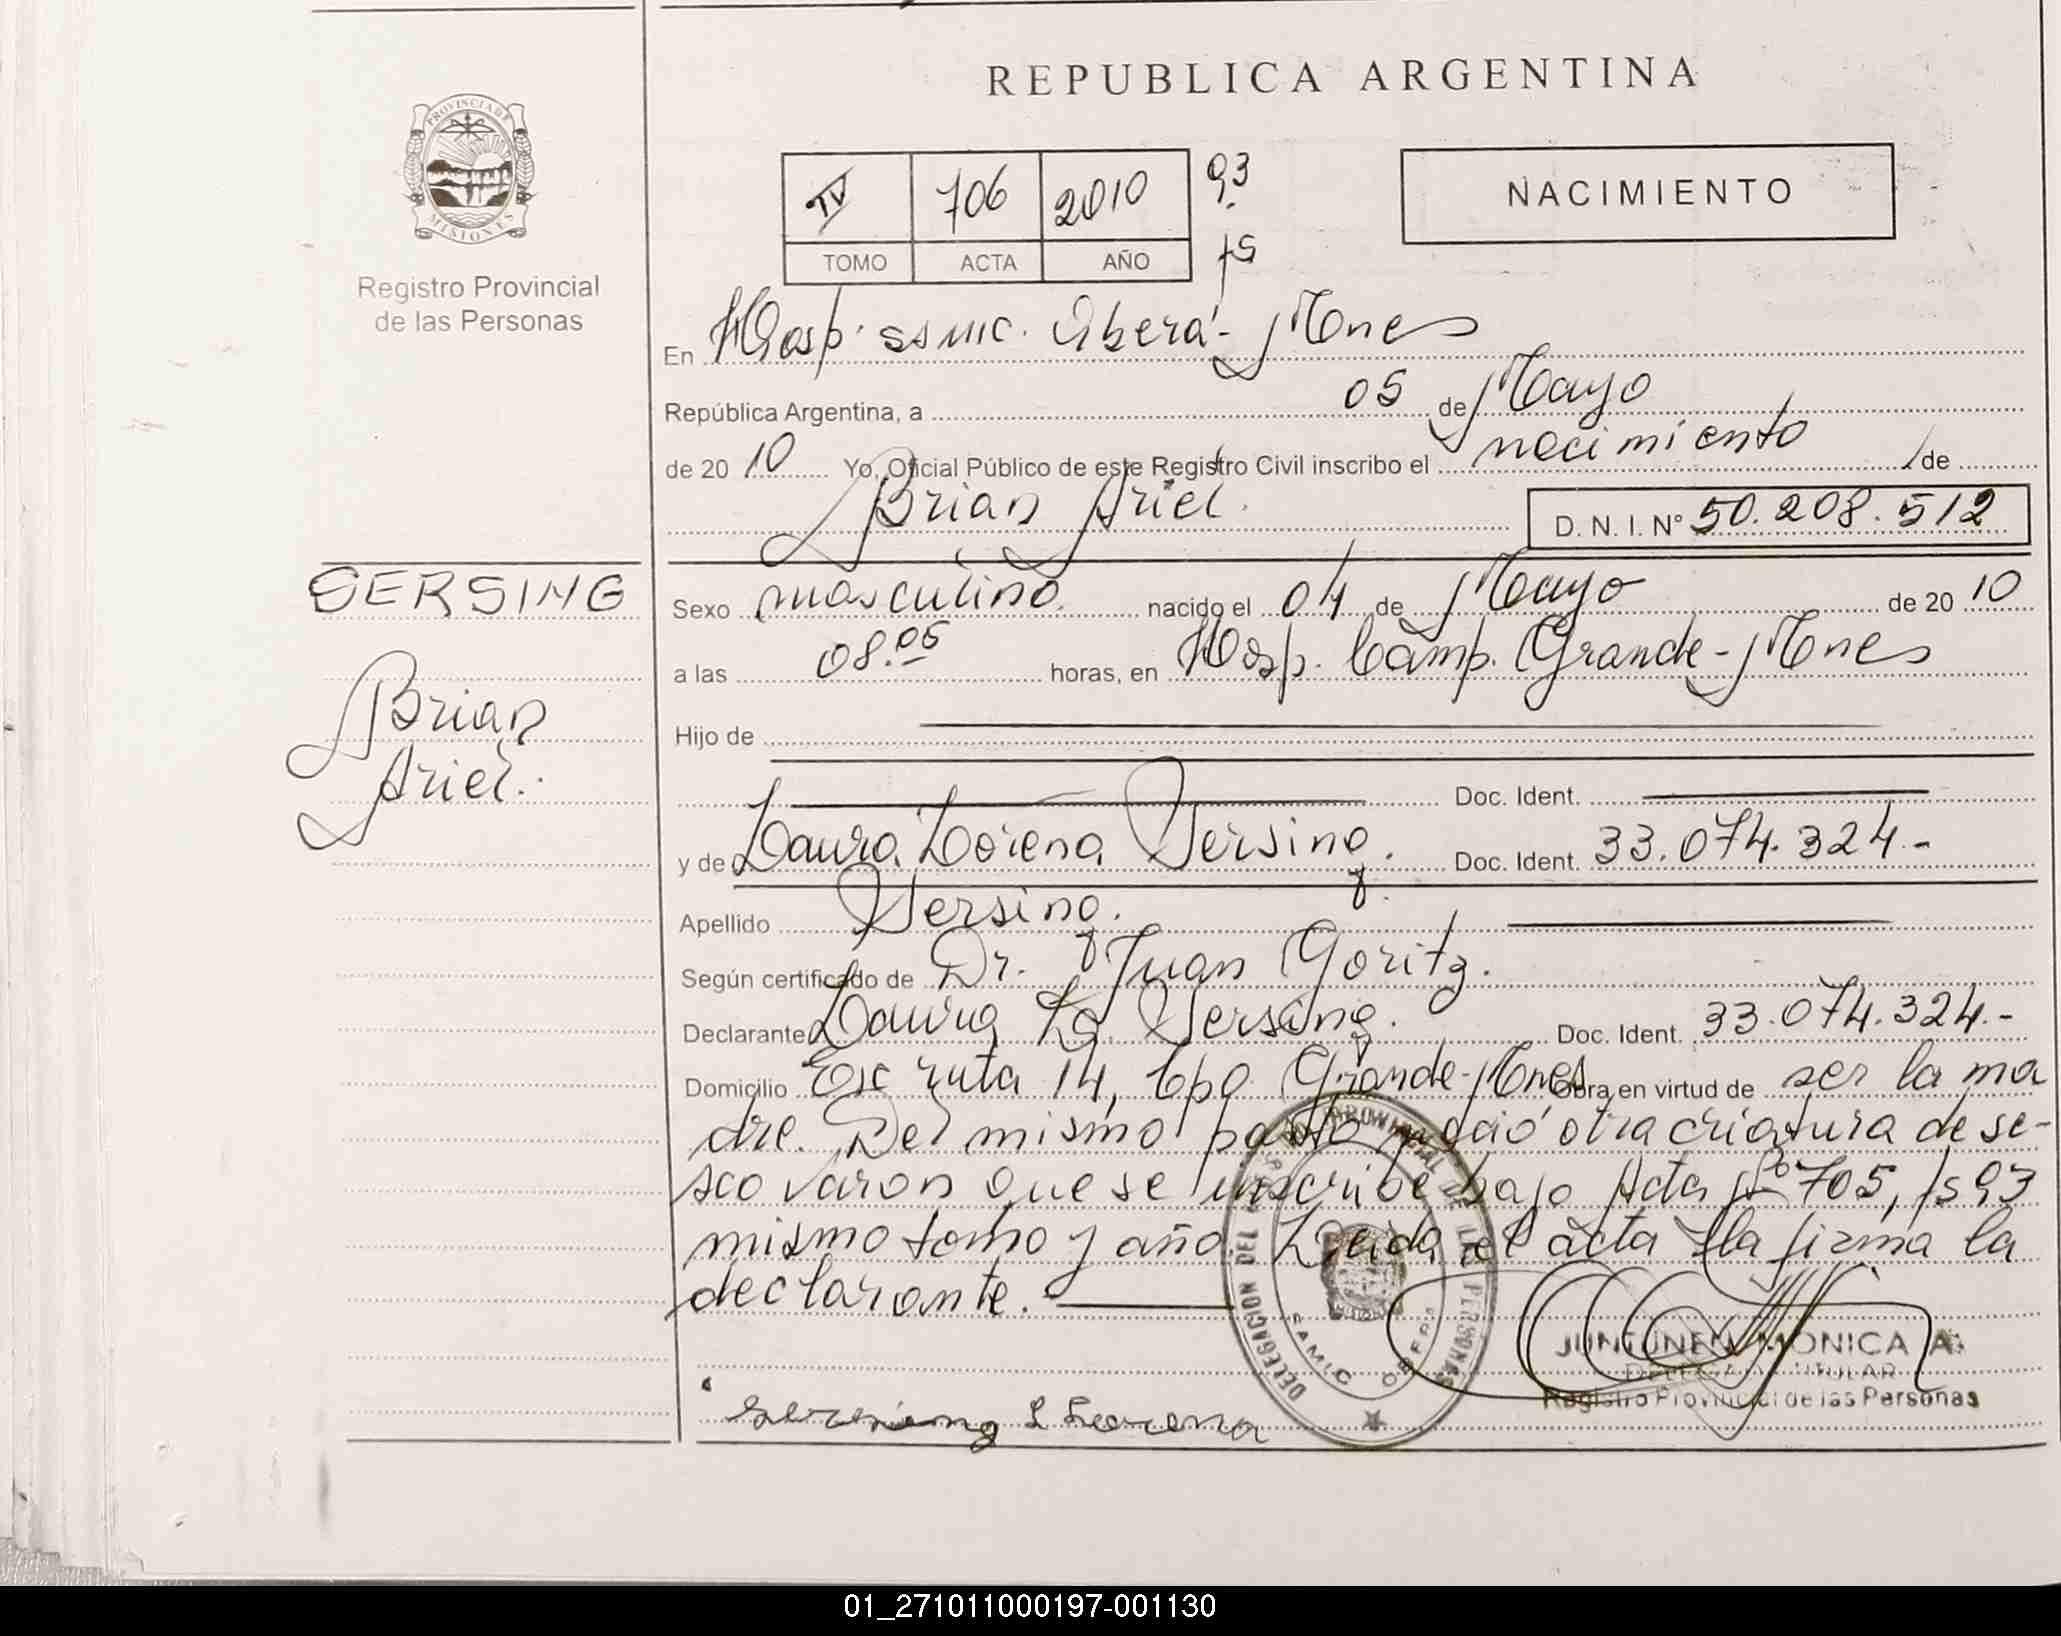 REPUBLICA ARGENTINA
PROVINCIA DE MISIONES
Registro Provincial
de las Personas
IV 706 2010 93
TOMO ACTA AÑO fs
NACIMIENTO
En Hosp. SAMIC. Oberá - Mnes
República Argentina, a 05 de Mayo
de 20 10 Yo, Oficial Público de este Registro Civil inscribo el nacimiento / de
Brian Ariel. D. N. I. Nº 50.208.512
SERSING
Brian
Ariel.
Sexo masculino. nacido el 04 de Mayo de 20 10
a las 08.05 horas, en Hosp. Camp. Grande - Mnes
Hijo de
Doc. Ident.
y de Laura Lorena Sersing. Doc. Ident. 33.074.324.-
Apellido Sersing.
Según certificado de Dr. Juan Goritz.
Declarante Laura Lo. Sersing. Doc. Ident. 33.074.324.-
Domicilio ruta 14, Cpo. Grande - Mnes Obra en virtud de ser la ma
dre. Del mismo parto nació otra criatura de se-
xo varon que se inscribe bajo Acta Nº 705, fs 93
mismo tomo y año. Leida el acta la firma la
declarante.
DELEGACION DEL REG. PROVINCIAL DE LAS PERSONAS
SAMIC OBERA
JUNTUNEN MONICA A.
DELEGADA TITULAR
Registro Provincial de las Personas
Sersing L Lorena
01_271011000197-001130